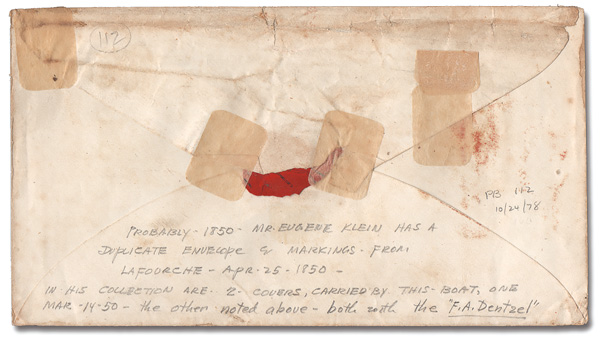 112
PB 112
10/24/78
PROBABLY - 1850 - MR. EUGENE KLEIN HAS A
DUPLICATE ENVELOPE & MARKINGS - FROM
LAFOURCHE - APR - 25 - 1850 -
IN HIS COLLECTION ARE - 2 - COVERS, CARRIED BY THIS - BOAT, ONE
MAR - 14 - 50 - the other noted above - both with the "F.A. Dentzel"